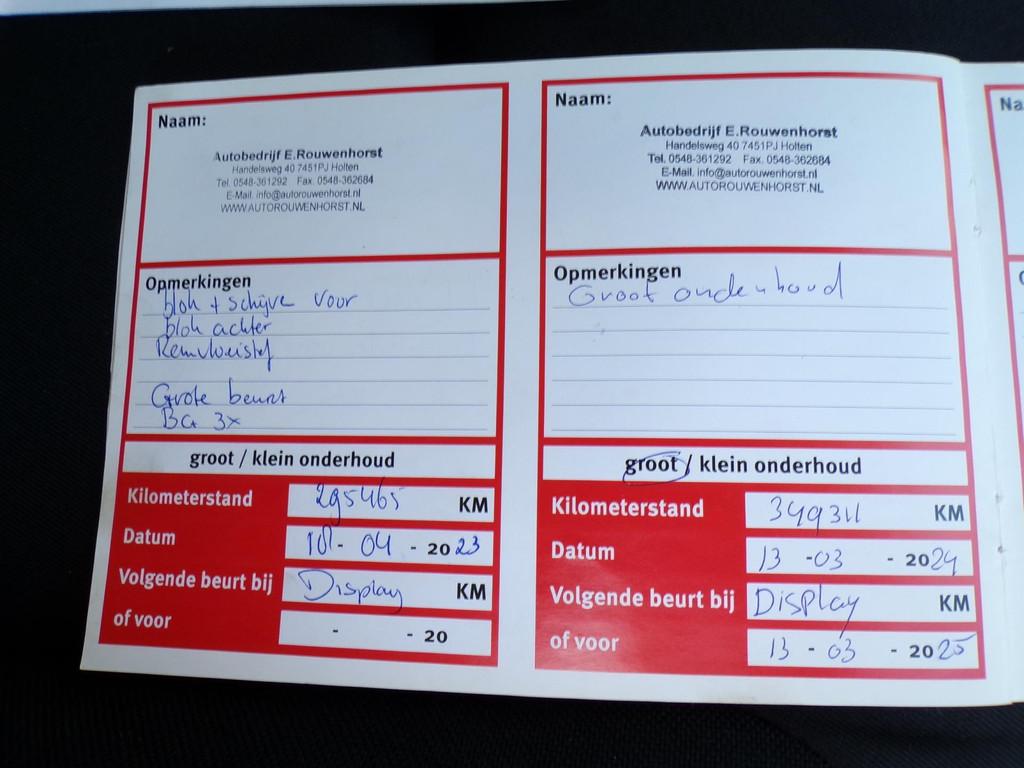 Naam:
Autobedrijf E.Rouwenhorst
Handelsweg 40 7451PJ Holten
Tel. 0548-361292 Fax. 0548-362684
E-Mail. info@autorouwenhorst.nl
WWW.AUTOROUWENHORST.NL
Opmerkingen
blok + schijve voor
blok achter
Remvloeistof
Grote beurt
BG 3x
groot / klein onderhoud
Kilometerstand 295465 KM
Datum - 04 - 2023
Volgende beurt bij Display KM
of voor - - 20
Naam:
Autobedrijf E.Rouwenhorst
Handelsweg 40 7451PJ Holten
Tel. 0548-361292 Fax. 0548-362684
E-Mail. info@autorouwenhorst.nl
WWW.AUTOROUWENHORST.NL
Opmerkingen
Groot onderhoud
groot / klein onderhoud
Kilometerstand 349311 KM
Datum 13 - 03 - 2024
Volgende beurt bij Display KM
of voor 13 - 03 - 2025
Na